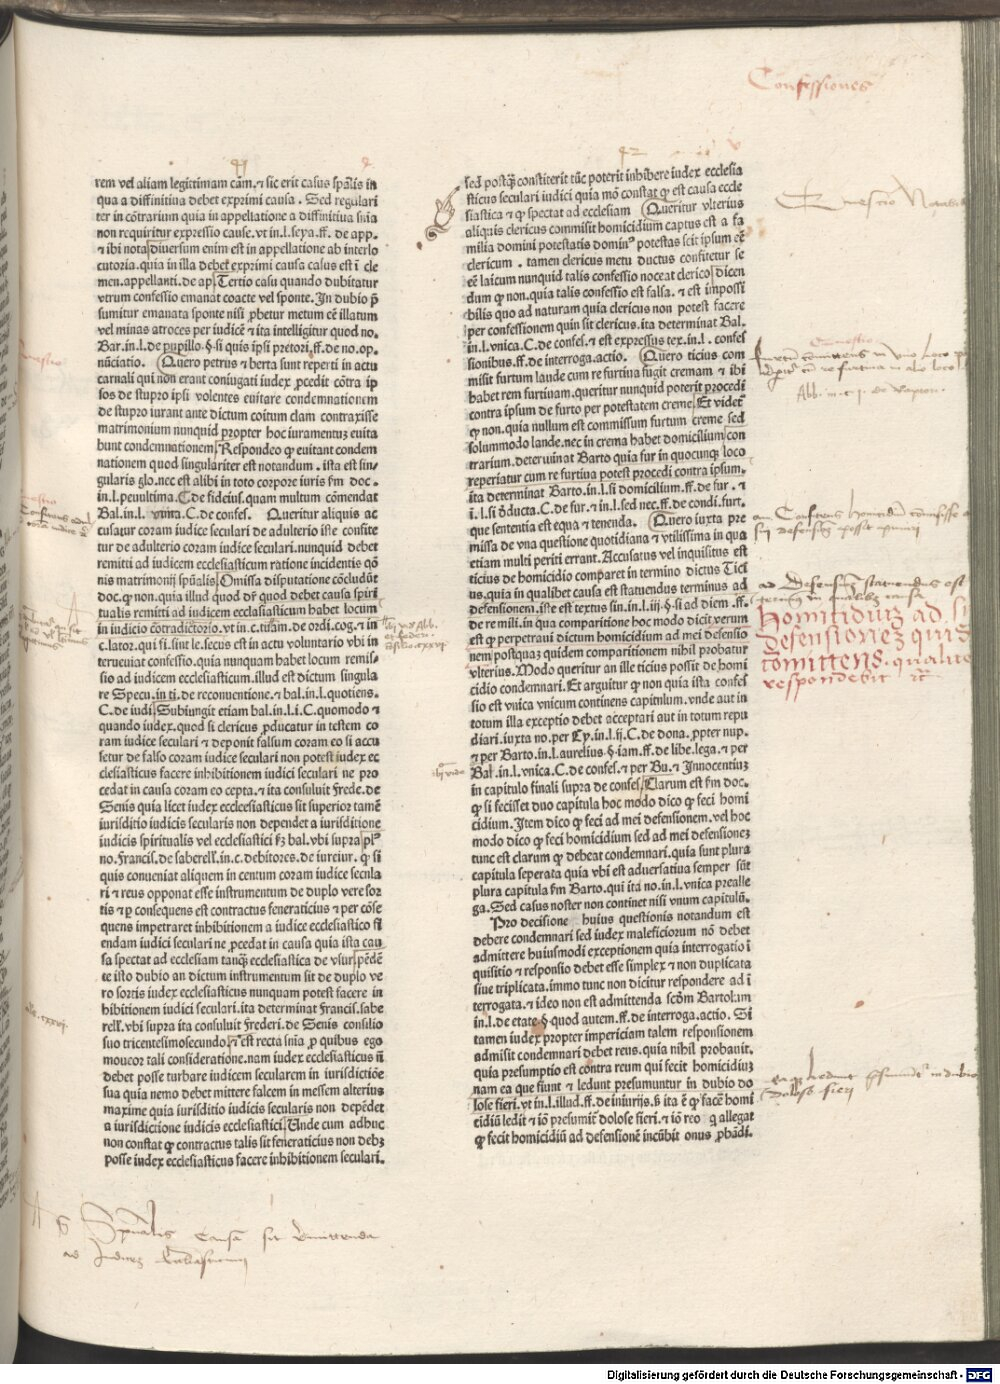 Confessiones
41
42
rem vel aliam legittimam cām.⁊ sic erit casus spālis in
qua a diffinitiua debet exprimi causa . Sed regulari
ter in cōtrarium quia in appellatione a diffinitiua snīa
non requiritur expressio cause.vt in.l.scya.ff. de app.
⁊ ibi nota diuersum enim est in appellatione ab interlo
cutoria.quia in illa debet exprimi causa casus est ī cle
men.appellanti.de ap Tertio casu quando dubitatur
vtrum confessio emanat coacte vel sponte. In dubio p̄
sumitur emanata sponte nisi ꝓbetur metum cē illatum
vel minas atroces per iudicē ⁊ ita intelligitur quod no.
Bar.in.l.de pupillo.§.si quis ip̄si pretori.ff.de no.op-
nūciatio. Quero petrus ⁊ berta sunt reperti in actu
carnali qui non erant coniugati iudex ꝓcedit cōtra ip
sos de stupro ip̄si volentes euitare condemnationem
de stupro iurant ante dictum coitum clam contraxisse
matrimonium nunquid propter hoc iuramentuꝫ euita
bunt condemnationem Respondeo ꝙ euitant condem
nationem quod singulariter est notandum . ista est sin-
gularis glo.nec est alibi in toto corpore iuris fm doc.
in.l.penultima.C.de fideius.quam multum cōmendat
Bal.in.l. vnica.C.de confes. Queritur aliquis ac
cusatur coram iudice seculari de adulterio iste confite
tur de adulterio coram iudice seculari.nunquid debet
remitti ad iudicem ecclesiasticum ratione incidentis qō
nis matrimonij spūalis Omissa disputatione cōcludūt
doc.ꝙ non.quia illud quod dr̄ quod debet causa spiri
tualis remitti ad iudicem ecclesiasticum habet locum
in iudicio cōtradictorio.vt in.c.tuam.de ordi.cog.⁊ in
c.lator.qui fi.sint le.secus est in actu voluntario vbi in
terueniat confessio.quia nunquam habet locum remis-
sio ad iudicem ecclesiasticum.illud est dictum singula
re Specu.in ti.de reconuentione.⁊ bal.in.l.quotiens.
C.de iudi Subiungit etiam bal.in.l.i.C.quomodo ⁊
quando iudex.quod si clericus ꝓducatur in testem co
ram iudice seculari ⁊ deponit falsum coram eo si accu
setur de falso coram iudice seculari non potest iudex ec
clesiasticus facere inhibitionem iudici seculari ne pro
cedat in causa coram eo cepta.⁊ ita consuluit Frede.de
Senis quia licet iudex eccleesiasticus sit superior tamē
iurisditio iudicis secularis non dependet a iurisditione
iudicis spiritualis vel ecclesiastici fꝫ bal.vbi supra pl⁹
no.Francis.de sabereƚƚ.in.c.debitores.de iureiur. ꝙ si
quis conueniat aliquem in centum coram iudice secula
ri ⁊ reus opponat esse instrumentum de duplo vere sor
tis ⁊ ꝑ consequens est contractus feneraticius ⁊ per cōse
quens impetraret inhibitionem a iudice ecclesiastico fi
endam iudici seculari ne ꝓcedat in causa quia ista cau
sa spectat ad ecclesiam tanꝗ̄ ecclesiastica de vsur pēdē
te isto dubio an dictum instrumentum sit de duplo ve
ro sortis iudex ecclesiasticus nunquam potest facere in
hibitionem iudici seculari.ita determinat Francis.sabe
reƚƚ.vbi supra ita consuluit Frederi.de Senis consilio
suo tricentesimosecundo.⁊ est recta snīa ꝓ quibus ego
moueor tali consideratione.nam iudex ecclesiasticus nō
debet posse turbare iudicem secularem in iurisdictiōe
sua quia nemo debet mittere falcem in messem alterius
maxime quia iurisditio iudicis secularis non depēdet
a iurisdictione iudicis ecclesiastici Unde cum adhuc
non constat ꝙ contractus talis sit feneraticius non debꝫ
posse iudex ecclesiasticus facere inhibitionem seculari.
sed postꝗ̄ constiterit tūc poterit inhibere iudex ecclesia
sticus seculari iudici quia mō constat ꝙ est causa eccle
siastica ⁊ ꝙ spectat ad ecclesiam Queritur vlterius
aliquis clericus commisit homicidium captus est a fa
milia domini potestatis domin⁹ potestas scit ipsum cē
clericum . tamen clericus metu ductus confitetur se
eē laicum nunquid talis confessio noceat clerico dicen
dum ꝙ non.quia talis confessio est falsa. ⁊ est impossi
bilis quo ad naturam quia clericus non potest facere
per confessionem quin sit clericus. ita determinat Bal.
in.l.vnica.C.de confes.⁊ est expressus tex.in.l. confes
sionibus.ff.de interroga.actio. Quero ticius com
misit furtum laude cum re furtiua fugit cremam ⁊ ibi
habet rem furtiuam.queritur nunquid poterit procedi
contra ipsum de furto per potestatem creme. Et videt⁊
ꝙ non.quia nullum est commissum furtum creme sed
solummodo laude.nec in crema habet domicilium con
trarium.determinat Barto quia fur in quocunꝗ loco
reperiatur cum re furtiua potest procedi contra ipsum.
ita determinat Barto.in.l.si domicilium.ff.de fur. ⁊
ī.l.si ꝓducta.C.de fur.⁊ in.l.sed nec.ff.de condi.furt.
que sententia est equa ⁊ tenenda. Quero iuxta pre
missa de vna questione quotidiana ⁊ vtilissima in qua
etiam multi periti errant. Accusatus vel inquisitus est
ticius de homicidio comparet in termino dictus Tici
us.quia in qualibet causa est statuendus terminus ad
defensionem.iste est textus sin.in.l.iij.§.si ad diem .ff.
de re mili.in qua comparitione hoc modo dicit verum
est ꝙ perpetraui dictum homicidium ad mei defensio
nem postquaꝫ quidem comparitionem nihil probatur
vlterius. Modo queritur an ille ticius possit de homi
cidio condemnari. Et arguitur ꝙ non quia ista confes
sio est vnica vnicum continens capitulum.vnde aut in
totum illa exceptio debet acceptari aut in totum repu
diari.iuxta no.per Cy.in.l.ij.C.de dona.ꝓpter nup.
⁊ per Barto.in.l.aurelius.§.iam.ff.de libe.lega.⁊ per
Bal.in.l.vnica.C.de confes.⁊ per Bu.⁊ Innocentiuꝫ
in capitulo finali supra de confes. Clarum est fm doc.
ꝙ si fecisset duo capitula hoc modo dico ꝙ feci homi
cidium. Item dico ꝙ feci ad mei defensionem.vel hoc
modo dico ꝙ feci homicidium sed ad mei defensioneꝫ
tunc est clarum ꝙ debeat condemnari.quia sunt plura
capitula seperata quia vbi est aduersatiua semper sūt
plura capitula fm Barto.qui ita no.in.l.vnica prealle
ga. Sed casus noster non continet nisi vnum capitulū.
Pro decisione huius questionis notandum est
debere condemnari sed iudex maleficiorum nō debet
admittere huiusmodi exceptionem quia interrogatio ī
quisitio ⁊ responsio debet esse simplex ⁊ non duplicata
siue triplicata.immo tunc non dicitur respondere ad ī
terrogata.⁊ ideo non est admittenda scdm Bartol.in
in.l.de etate.§.quod autem.ff.de interroga.actio. Si
tamen iudex propter imperciam talem responsionem
admisit condemnari debet reus.quia nihil probauit.
quia presumptio est contra reum qui fecit homicidiuꝫ
nam ea que fiunt ⁊ ledunt presumuntur in dubio do
lose fieri.vt in.l.illud.ff.de iniurijs.ß ita ē ꝙ facē homi
cidiū ledit ⁊ iō presumit⁊ dolose fieri.⁊ iō reo q̄ allegat
ꝙ fecit homicidiū ad defensionē incūbit onus ꝓbādi.
Questio
homicidium ad sui
defensionez quis
cōmittens . qualiter
respondebit ꝛc̄
ad Iudicez Ecclesiasticum
Digitalisierung gefördert durch die Deutsche Forschungsgemeinschaft - DFG